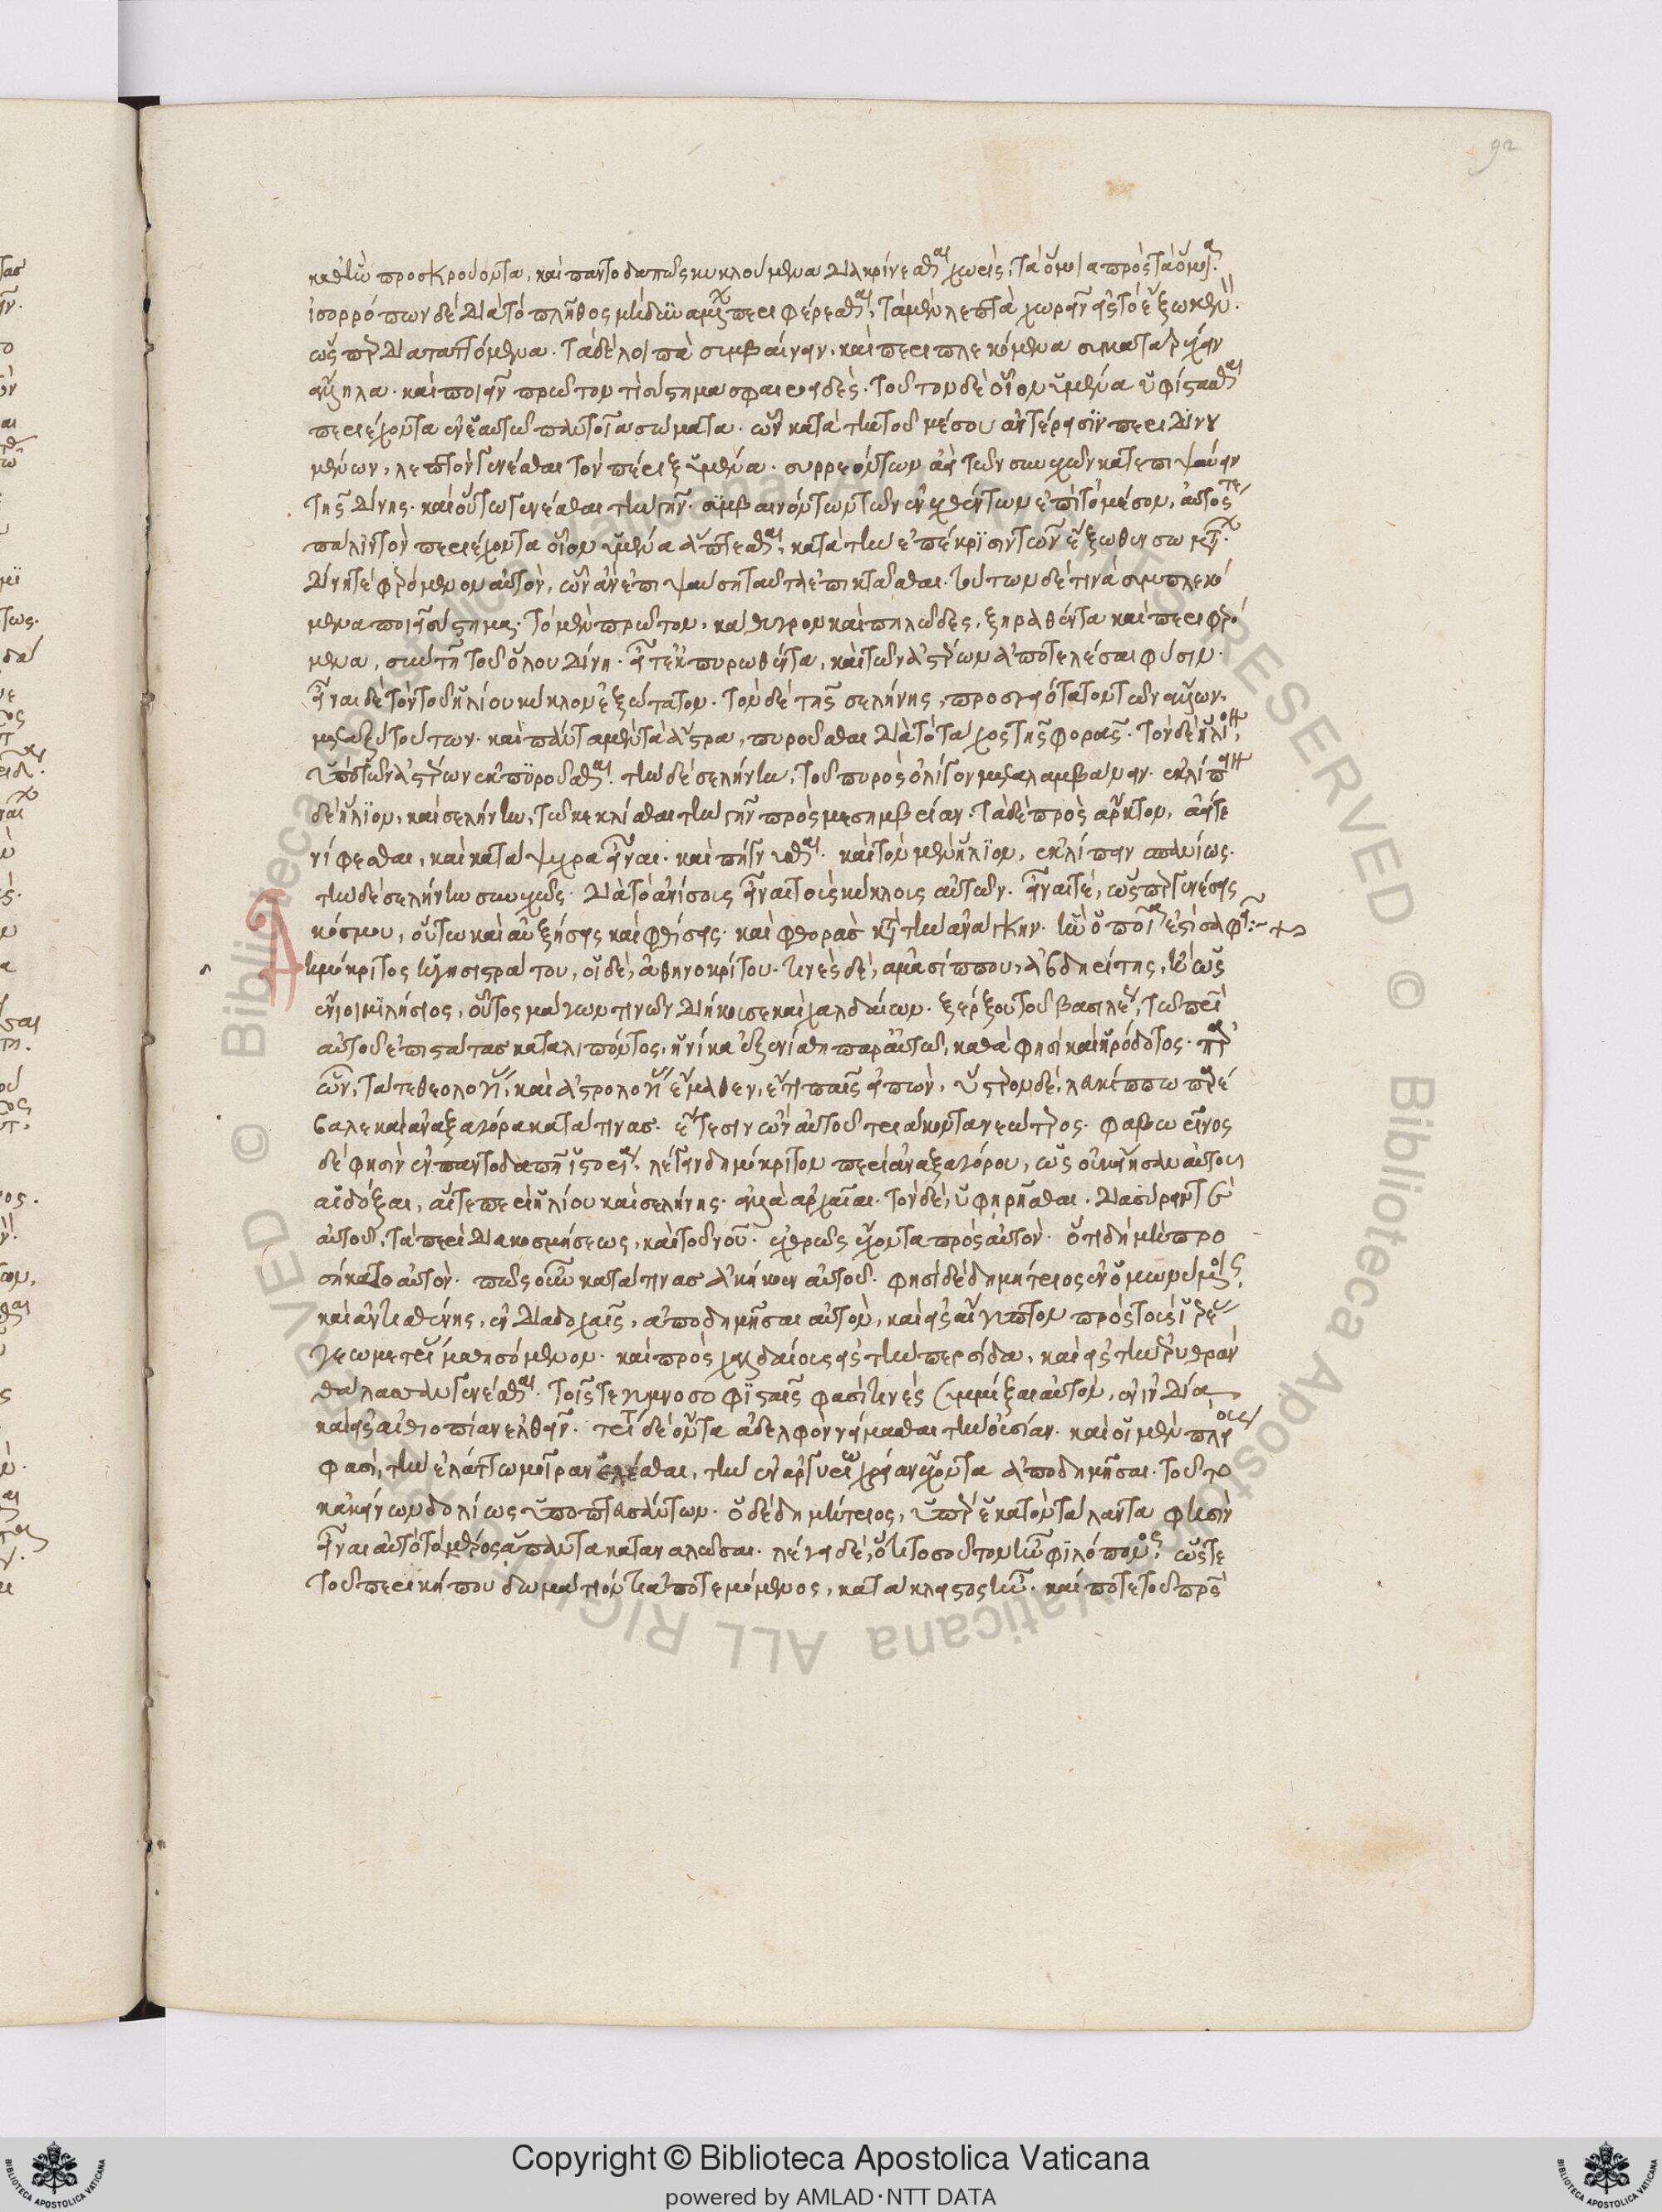 92
καθ' ἣν προσκρούοντα, καὶ παντοδαπῶς κυκλούμενα διακρίνεσθαι χωρὶς, τὰ ὅμοια πρὸς τὰ ὅμοια.
ἰσορρόπων δὲ διὰ τὸ πλῆθος μηδενὶ δυναμένων περιφέρεσθαι, τὰ μὲν λεπτὰ χωρεῖν εἰς τὸ ἔξω κενόν.
ὥσπερ διαπαττόμενα. τὰ δὲ λοιπὰ συμβαίνειν. καὶ περιπλεκόμενα συγκατατρέχειν
ἄλληλα. καὶ ποιεῖν πρῶτον τὶ σύστημα σφαιροειδές. τοῦτον δὲ οἷον ὑμένα ὑφίστασθαι
περιέχοντα ἐν ἑαυτῶ παντοῖα σώματα. ὧν κατὰ τὴν τοῦ μέσου ἀντέρεισιν περιδινου
μένων, λεπτὸν γενέσθαι τὸν πέριξ ὑμένα. συρρεόντων ἀεὶ τῶν συνεχῶν κατ' επιψαυσιν
τῆς δίνης. καὶ οὕτω γενέσθαι τὴν γῆν. συμβαινόντων τῶν ἐνεχθέντων ἐπὶ τὸ μέσον, αὐτός τε
πάλιν τὸν περιέχοντα οἷον ὑμένα αὔξεσθαι, κατὰ τὴν ἐπέκρϊσιν τῶν ἔξωθεν σωμάτων.
δίνη τὲ φερόμενον αὐτὸν, ὧν ἂν ἐπιψαύση ταῦτα ἐπικτᾶσθαι. τούτων δέ τινὰ συμπλεκό
μενα ποιεῖν σύστημα. τὸ μὲν πρῶτον, κάθυγρον καὶ πηλῶδες, ξηρανθέντα καὶ περιφερό
μενα, σὺν τῆ τοῦ ὅλου δίνη. εἶτ' ἐκπυρωθέντα, καὶ τῶν ἀστέρων ἀποτελέσαι φύσιν.
εἶναι δὲ τὸν τοῦ ἡλίου κύκλον ἐξώτατον. τὸν δὲ τῆς σελήνης, προσγειότατον τῶν ἄλλων.
μεταξὺ τούτων. καὶ πάντα μὲν τὰ ἄστρα, πυροῦσθαι διὰ τὸ τάχος τῆς φορᾶς. τὸν δὲ ἥλιον,
ὑπὸ τῶν ἀστέρων ἐκπυροῦσθαι. τὴν δὲ σελήνην, τοῦ πυρὸς ὀλίγον μεταλαμβάνειν. ἐκλίπειν
δὲ ἥλιον, καὶ σελήνην, τῶ κεκλίσθαι τὴν γῆν πρὸς μεσημβρίαν. τὰ δὲ πρὸς ἄρκτον, ἀεί τε
νίφεσθαι, καὶ κατάψυχρα εἶναι. καὶ πήγνυσθαι. καὶ τὸν μὲν ἥλιον, ἐκλίπειν σπανίως.
τὴν δὲ σελήνην συνεχῶς. διὰ τὸ ἀνίσους εἶναι τοὺς κύκλους αὐτῶν. εἶναι τὲ, ὥσπερ γενέσεις
κόσμου, οὕτω καὶ αὐξήσεις καὶ φθίσεις. καὶ φθορὰς κατὰ τὴν ἀνάγκην. ἣν ὁποία ἐστὶ σαφεῖ:~
Δημόκριτος ἡγησιστράτου, οἱ δὲ, ἀθηνοκρίτου. τινὲς δὲ, δαμασίππου, ἀβδηρίτης, ἢ ὡς
ἔνιοι μϊλήσιος, οὗτος μάγων τινῶν διήκουσε καὶ χαλδαίων. ξέρξου τοῦ βασιλέως, τῶ πατρὶ
αὐτοῦ ἐπιστάτας καταλιπόντος, ἡνίκα ἐξενίσθη παρ' αὐτῶ, καθά φησὶ καὶ ἡρόδοτος. παρ'
ὧν, τά τε θεολογίας, καὶ ἀστρολογίας ἔμαθεν, ἔτι παῖς ὤν, ὕστερον δὲ, λευκίππω παρέ
βαλε καὶ ἀναξαγόρα κατά τινας. ἔτεσιν ὢν αὐτοῦ τεσσαράκοντα νεώτερος. φαβωρῖνος
δέ φησιν ἐν παντοδαπῆ ἱστορία, λέγειν δημόκριτον περὶ ἀναξαγόρου, ὡς οὐκ εἴησαν αὐτοῦ
αἱ δόξαι, αἵ τε περὶ ἡλίου καὶ σελήνης. ἀλλὰ ἀρχαῖαι. τὸν δὲ, ὑφηρῆσθαι. διασύρειν τε
αὐτοῦ, τὰ περὶ διακοσμήσεως, καὶ τοῦ νοῦ. ἐχθρῶς ἔχοντα πρὸς αὐτὸν. ὅτι δὴ μὴ προ
σήκατο αὐτὸν. πῶς οὖν κατά τινας ἀκήκοεν αὐτοῦ. φησὶ δὲ δημήτριος ἐν ὁμωνύμοις,
καὶ ἀντισθένης, ἐν διαδοχαῖς, ἀποδημῆσαι αὐτὸν, καὶ εἰς αἴγυπτον πρὸς τοὺς ἱερέας
γεωμετρίαν μαθησόμενον. καὶ πρὸς χαλδαίους εἰς τὴν περσίδα, καὶ εἰς τὴν ἐρυθρὰν
θάλασσαν γενέσθαι. τοῖς τε γυμνοσοφϊσταῖς φασί τινὲς συμμίξαι αὐτὸν, ἐν ἰνδία
καὶ εἰς αἰθιοπίαν ἐλθεῖν. τρίτόν δὲ ὄντα ἀδελφὸν νείμασθαι τὴν οὐσίαν. καὶ οἱ μὲν πλείους
φασὶ, τὴν ἐλάττω μοῖραν ἑλέσθαι, τὴν ἐν ἀργυρίω χρείαν ἔχοντα ἀποδημῆσαι. τοῦτο
κἀκείνων δολίως ὑποπτευσάντων. ὁ δὲ δημήτριος, ὑπὲρ ἑκατὸν τάλαντα φησὶν
εἶναι αὐτῶ τὸ μέρος ἃ πάντα καταναλῶσαι. λέγει δὲ, ὅτι τοσοῦτον ἦν φϊλόπονος, ὥστε
τοῦ περικήπου δωμάτιόν τι ἀποτεμόμενος, κατάκλειστος ἦν. καί ποτε τοῦ πατρὸς
Copyright © Biblioteca Apostolica Vaticana
powered by AMLAD·NTT DATA